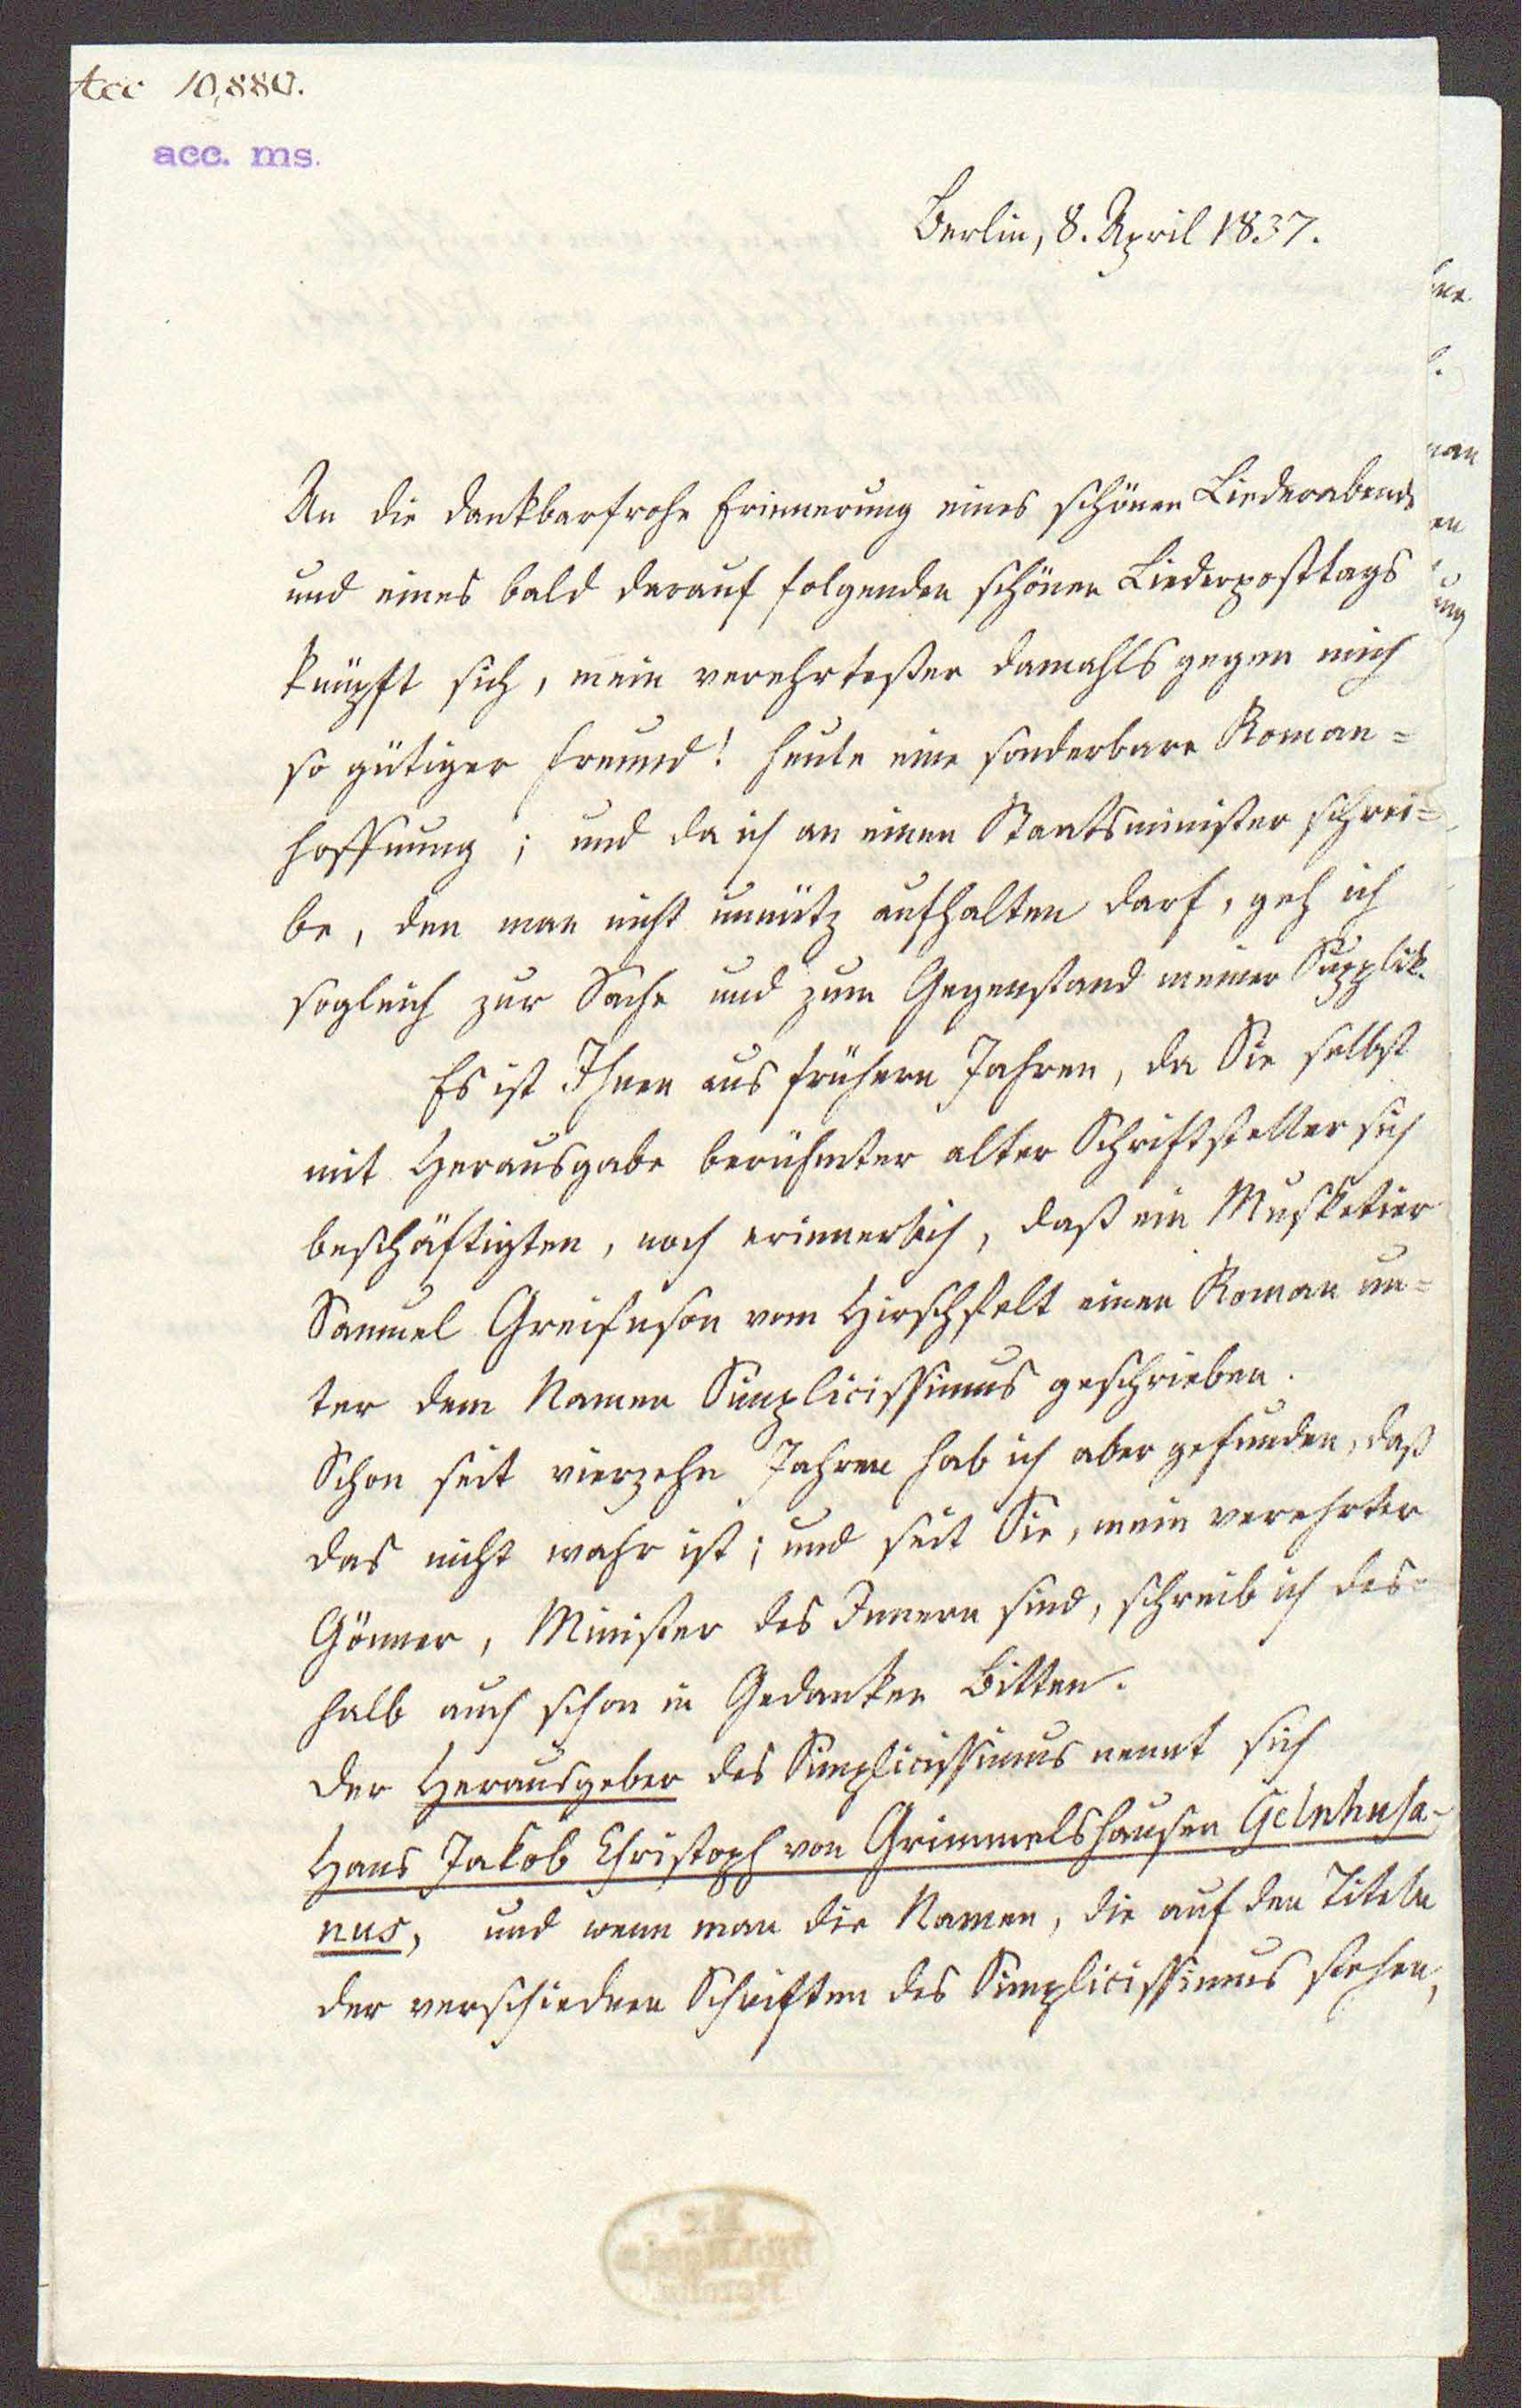 Acc 10,880.
acc. ms.
Berlin, 8. April 1837.
An die dankbarfrohe Erinnerung eines schönen Liederabends
und eines bald darauf folgenden schönen Liederposttags
knüpft sich, mein verehrtester damahls gegen mich
so gütiger Freund! heute eine sonderbare Roman=
hoffnung; und da ich an einen Staatsminister schrei=
be, den man nicht unnütz aufhalten darf, geh ich
sogleich zur Sache und zum Gegenstand meiner Supplik.
Es ist Ihnen aus frühern Jahren, da Sie selbst
mit Herausgabe berühmter alter Schriftsteller sich
beschäftigten, noch erinnerlich, daß ein Musketier
Samuel Greifnson vom Hirschfelt einen Roman un=
ter dem Namen Simplicissimus geschrieben.
Schon seit vierzehn Jahren hab ich aber gefunden, daß
das nicht wahr ist; und seit Sie, mein verehrter
Gönner, Minister des Innern sind, schreib ich des=
halb auch schon in Gedanken Bitten.
Der Herausgeber des Simplicissimus nennt sich
Hans Jakob Christoph von Grimmelshausen Gelnhusa-
nus, und wenn man die Namen, die auf den Titeln
der verschiednen Schriften des Simplicissimus stehen,